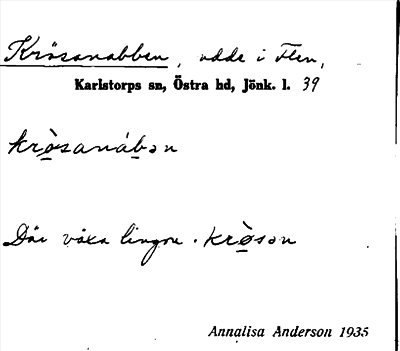 Krösanabben, udde i Flen,
Karlstorps sn, Östra hd, Jönk. l. 39
krø̀sanábən
Där växa lingon. krø̀sən
Annalisa Anderson 1935